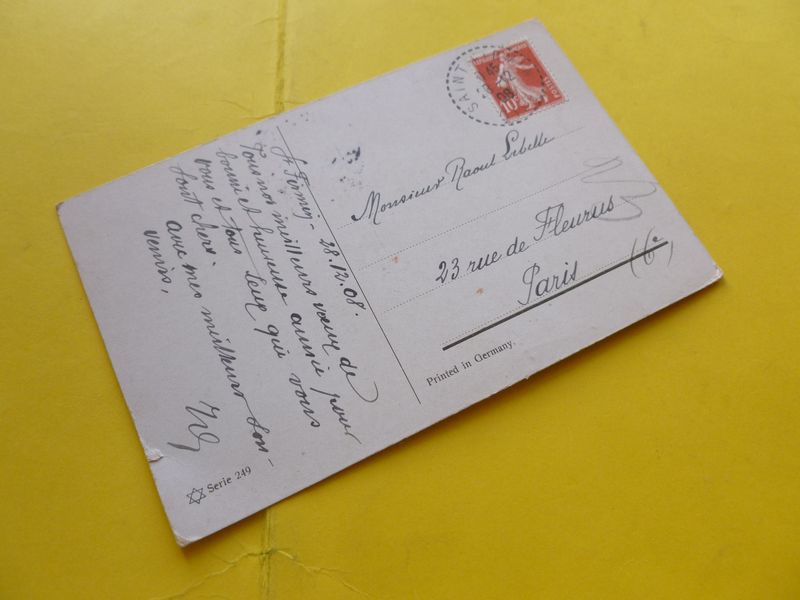 St Firmin - 28.12.08.
Tous nos meilleurs vœux de
bonne et heureuse année pour
vous et tous ceux qui vous
sont chers.
avec mes meilleurs Sou-
venirs,
Serie 249
SAINT
10
POSTES
Monsieur Raoul Lebelle
23 rue de Fleurus
Paris (6e
Printed in Germany.